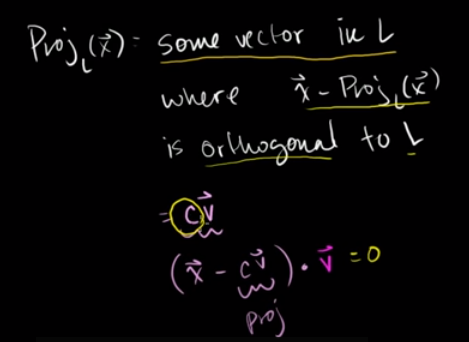 Proj_L(x⃗) = some vector in L
where x⃗ - Proj_L(x⃗)
is orthogonal to L
= cv⃗
(x⃗ - cv⃗) · v⃗ = 0
proj